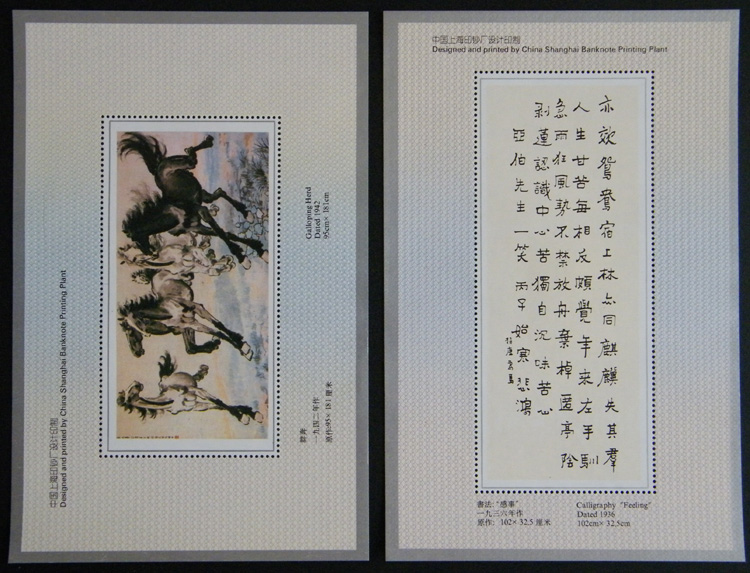 中国上海印钞厂设计印制
Designed and printed by China Shanghai Banknote Printing Plant
Galloping Herd
Dated 1942
95cm × 181cm
群奔
一九四二年作
原作:95×181厘米
中国上海印钞厂设计印制
Designed and printed by China Shanghai Banknote Printing Plant
亦效鴛鴦宿上林亦同麒麟失其羣
人生甘苦每相反頗覺年來左手馴
急雨狂風勢不禁放舟棄棹匿亭陰
剥蓮認識中心苦獨自沉味苦心
亞伯先生一笑 丙子始寒悲鴻
書法:“感事”
一九三六年作
原作:102×32.5厘米
Calligraphy "Feeling"
Dated 1936
102cm×32.5cm